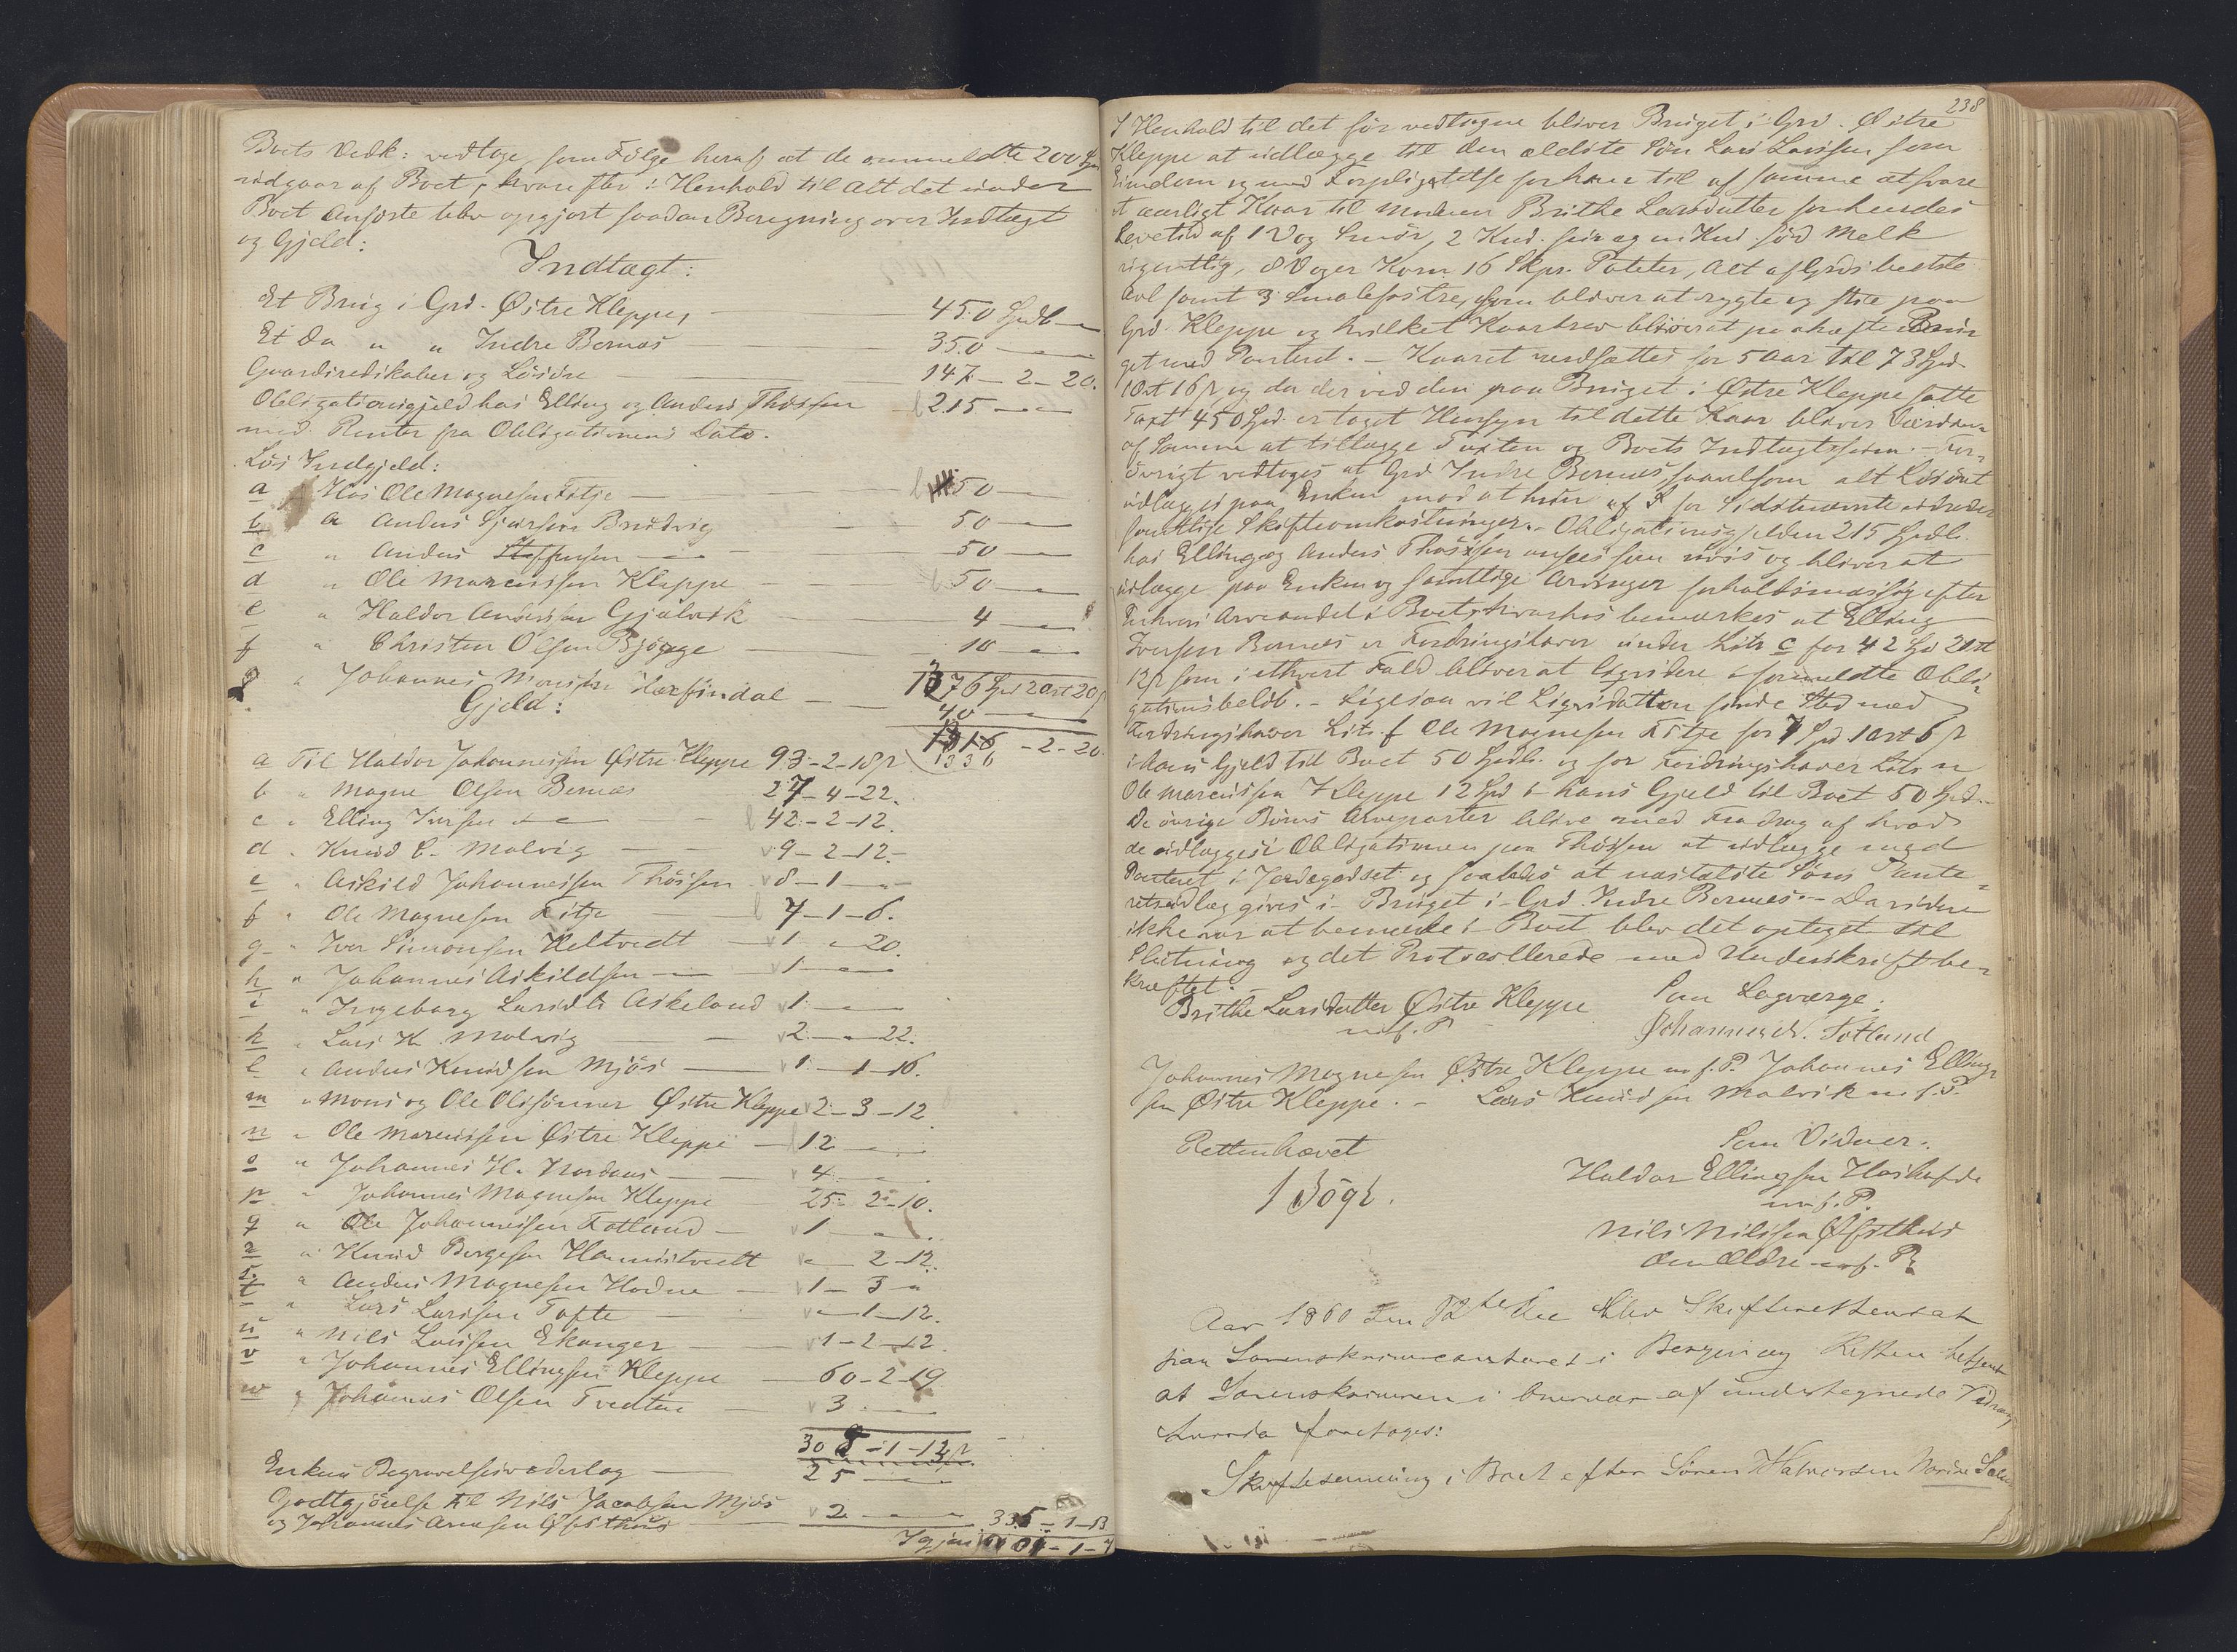 Boets Vedk: vedtoge, som Følge heraf at de anmeldte 200 Spd
udgaar af Boet, hvorefter i Henhold til alt det under
Boet Anførte blev opgjort saadan Beregning over Indtægt
og Gjeld:
Indtægt:
Et Brug i Grd. Østre Kleppe, 450 Spdlr
Et Do " " Indre Bernæs 350
Gaardsredskaber og Løsøre 147 - 2 - 20.
Obligationsgjeld hos Elling og Anders Thøssen 215
med Renter fra Obligationens Dato.
Løs Indgjeld:
a Hos Ole Magnesen Fitje 50
b " Anders Brudvig 50
c " Anders Steffensen 50
d " Ole Marcussen Kleppe 50
e " Haldor Anderssen Gjelvik 4
f " Christen Olsen 10
1376 Spd 2 ort 20 s
g " Johannes Monssen 40
Gjeld:
1316 - 2 - 20.
1336
a Til Haldor Johannessen Østre Kleppe 93 - 2 - 18 s
b " Magne Olsen Bernæs 27 - 4 - 22.
c " Elling Iversen 42 - 2 - 12.
d " Knud C. Malvig 9 - 2 - 12.
e " Askild Johannessen Thøssen 8 - 1 -
f " Ole Magnesen Fitje 7 - 1 - 6.
g " Iver Simonsen Heltvedt 1 " 20.
h " Johannes Askildsen 1
i " Ingeborg Larsdtr Askeland 1
k " Lars K. Malvig 2 - " 22.
l " Anders Knudsen Mjøs 1 - 1 - 16.
m " Mons og Ole Olssønner Østre Kleppe 2 - 3 - 12
n " Ole Marcussen Østre Kleppe 12
o " Johannes H. Nordaas 4
p " Johannes Magnesen Kleppe 25 - 2 - 10.
q " Ole Johannessen Totland 1
r " Knud Børgesen 2 - 12.
s " Anders Magnesen 1 - 3 "
t " Lars Larssen Tofte 1 - 12.
u " Nils Larssen Ekanger 1 - 2 - 12.
v " Johannes Ellingsen Kleppe 60 - 2 - 19
w " Johannes Olsen Tvedten 3
308 - 1 - 13 s
Enkens Begravelsesvederlag 25
Godtgjørelse til Nils Jacobsen Mjøs
og Johannes Arnesen Øfsthus 2 335 - 1 - 13
Igjen 1001 - 1 - 7
238
I Henhold til det før vedtagne bliver Bruget i Grd. Østre
Kleppe at udlægge til den ældste Søn Lars Larssen som
Eiendom og med Forpligtelse for ham til af samme at svare
et aarligt Kaar til Moderen Brithe Larsdatter for hendes
Levetid af 1 Vog Smør, 2 Knd. sur og en Knd. sød Melk
ugentlig, 8 Voger Korn 16 Skpr. Poteter, alt af Grds bedste
Avl samt 3 Smaleføstre, som bliver at rygte og stee paa
Grd. Kleppe og hvilket Kaarbrev bliver at paahæfte Bru-
get med Panteret. - Kaaret værdsættes for 5 Aar til 73 Spd.
1 Ort 16 s og da der ved den paa Bruget i Østre Kleppe satte
Taxt 450 Spd. er taget Hensyn til dette Kaar bliver Værdien
af Samme at tillægge Taxten og Boets Indtægtssum. - For-
øvrigt vedtoges at Grd Indre Bernæs, saavelsom alt Løsøret
udlægges paa Enken mod at hun af for Sidstnævnte udreder
samtlige Skifteomkostninger. - Obligationsgjelden 215 Spdlr.
hos Elling og Anders Thøssen ansees som uvis og bliver at
udlægge paa Enken og samtlige Arvinger forholdsmæssig efter
Enhvers Arveandel i Boet, hvorhos bemærkes at Elling
Iversen Bernæs er Fordringshaver under Litr c for 42 Spd 2 ort
12 s som i ethvert Fald bliver at liqvidere i formeldte Obli-
gationsbeløb. - Ligesaa vil Liqvidation finde Sted med
Fordringshaver Litr. f Ole Magnesen Fitje for 7 Spd 1 ort 6 s
i hans Gjeld til Boet 50 Spdlr. og for Fordringshaver Litr n
Ole Marcussen Kleppe 12 Spd i hans Gjeld til Boet 50 Spd. -
De øvrige Børns Arveparter blive med Fradrag af hvad
de udlægges i Obligationen paa Thøssen at udlægge med
Panteret i Jordegodset og saaledes at næstældste Søns Pante-
retsudlæg gives i Bruget i Grd. Indre Bernæs. - Da videre
ikke var at bemærke i Boet blev det optaget til
Slutning og det Protocollerede med Underskrift be-
kræftet. -
Brithe Larsdatter Østre Kleppe Som Lagværge:
m. f. P. Johannes A. Totland
Johannes Magnesen Østre Kleppe m. f. P. Johannes Elling-
sen Østre Kleppe. - Lars Knudsen Malvik m. f. P.
Retten hævet Som Vidner:
Haldor Ellingsen
m. f. P.
Nils Nilssen Øfsthus
den Ældre m. f. P.
Aar 1860 den 12te Dec blev Skifteretten sat
paa Sorenskrivercontoret i Bergen og Retten betjent
af Sorenskriveren i Overvær af undertegnede Vidner,
hvorda foretoges:
Skiftesamling i Boet efter Søren Halvorsen